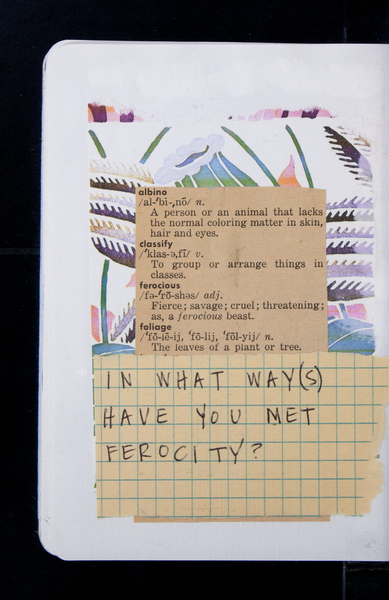 albino
/al-ˈbī-ˌnō/ n.
A person or an animal that lacks
the normal coloring matter in skin,
hair and eyes.
classify
/ˈklas-ə,fī/ v.
To group or arrange things in
classes.
ferocious
/fə-ˈrō-shəs/ adj.
Fierce; savage; cruel; threatening;
as, a ferocious beast.
foliage
/ˈfō-lē-ij, ˈfō-lij, ˈfōl-yij/ n.
The leaves of a plant or tree.
IN WHAT WAY(S)
HAVE YOU MET
FEROCITY?